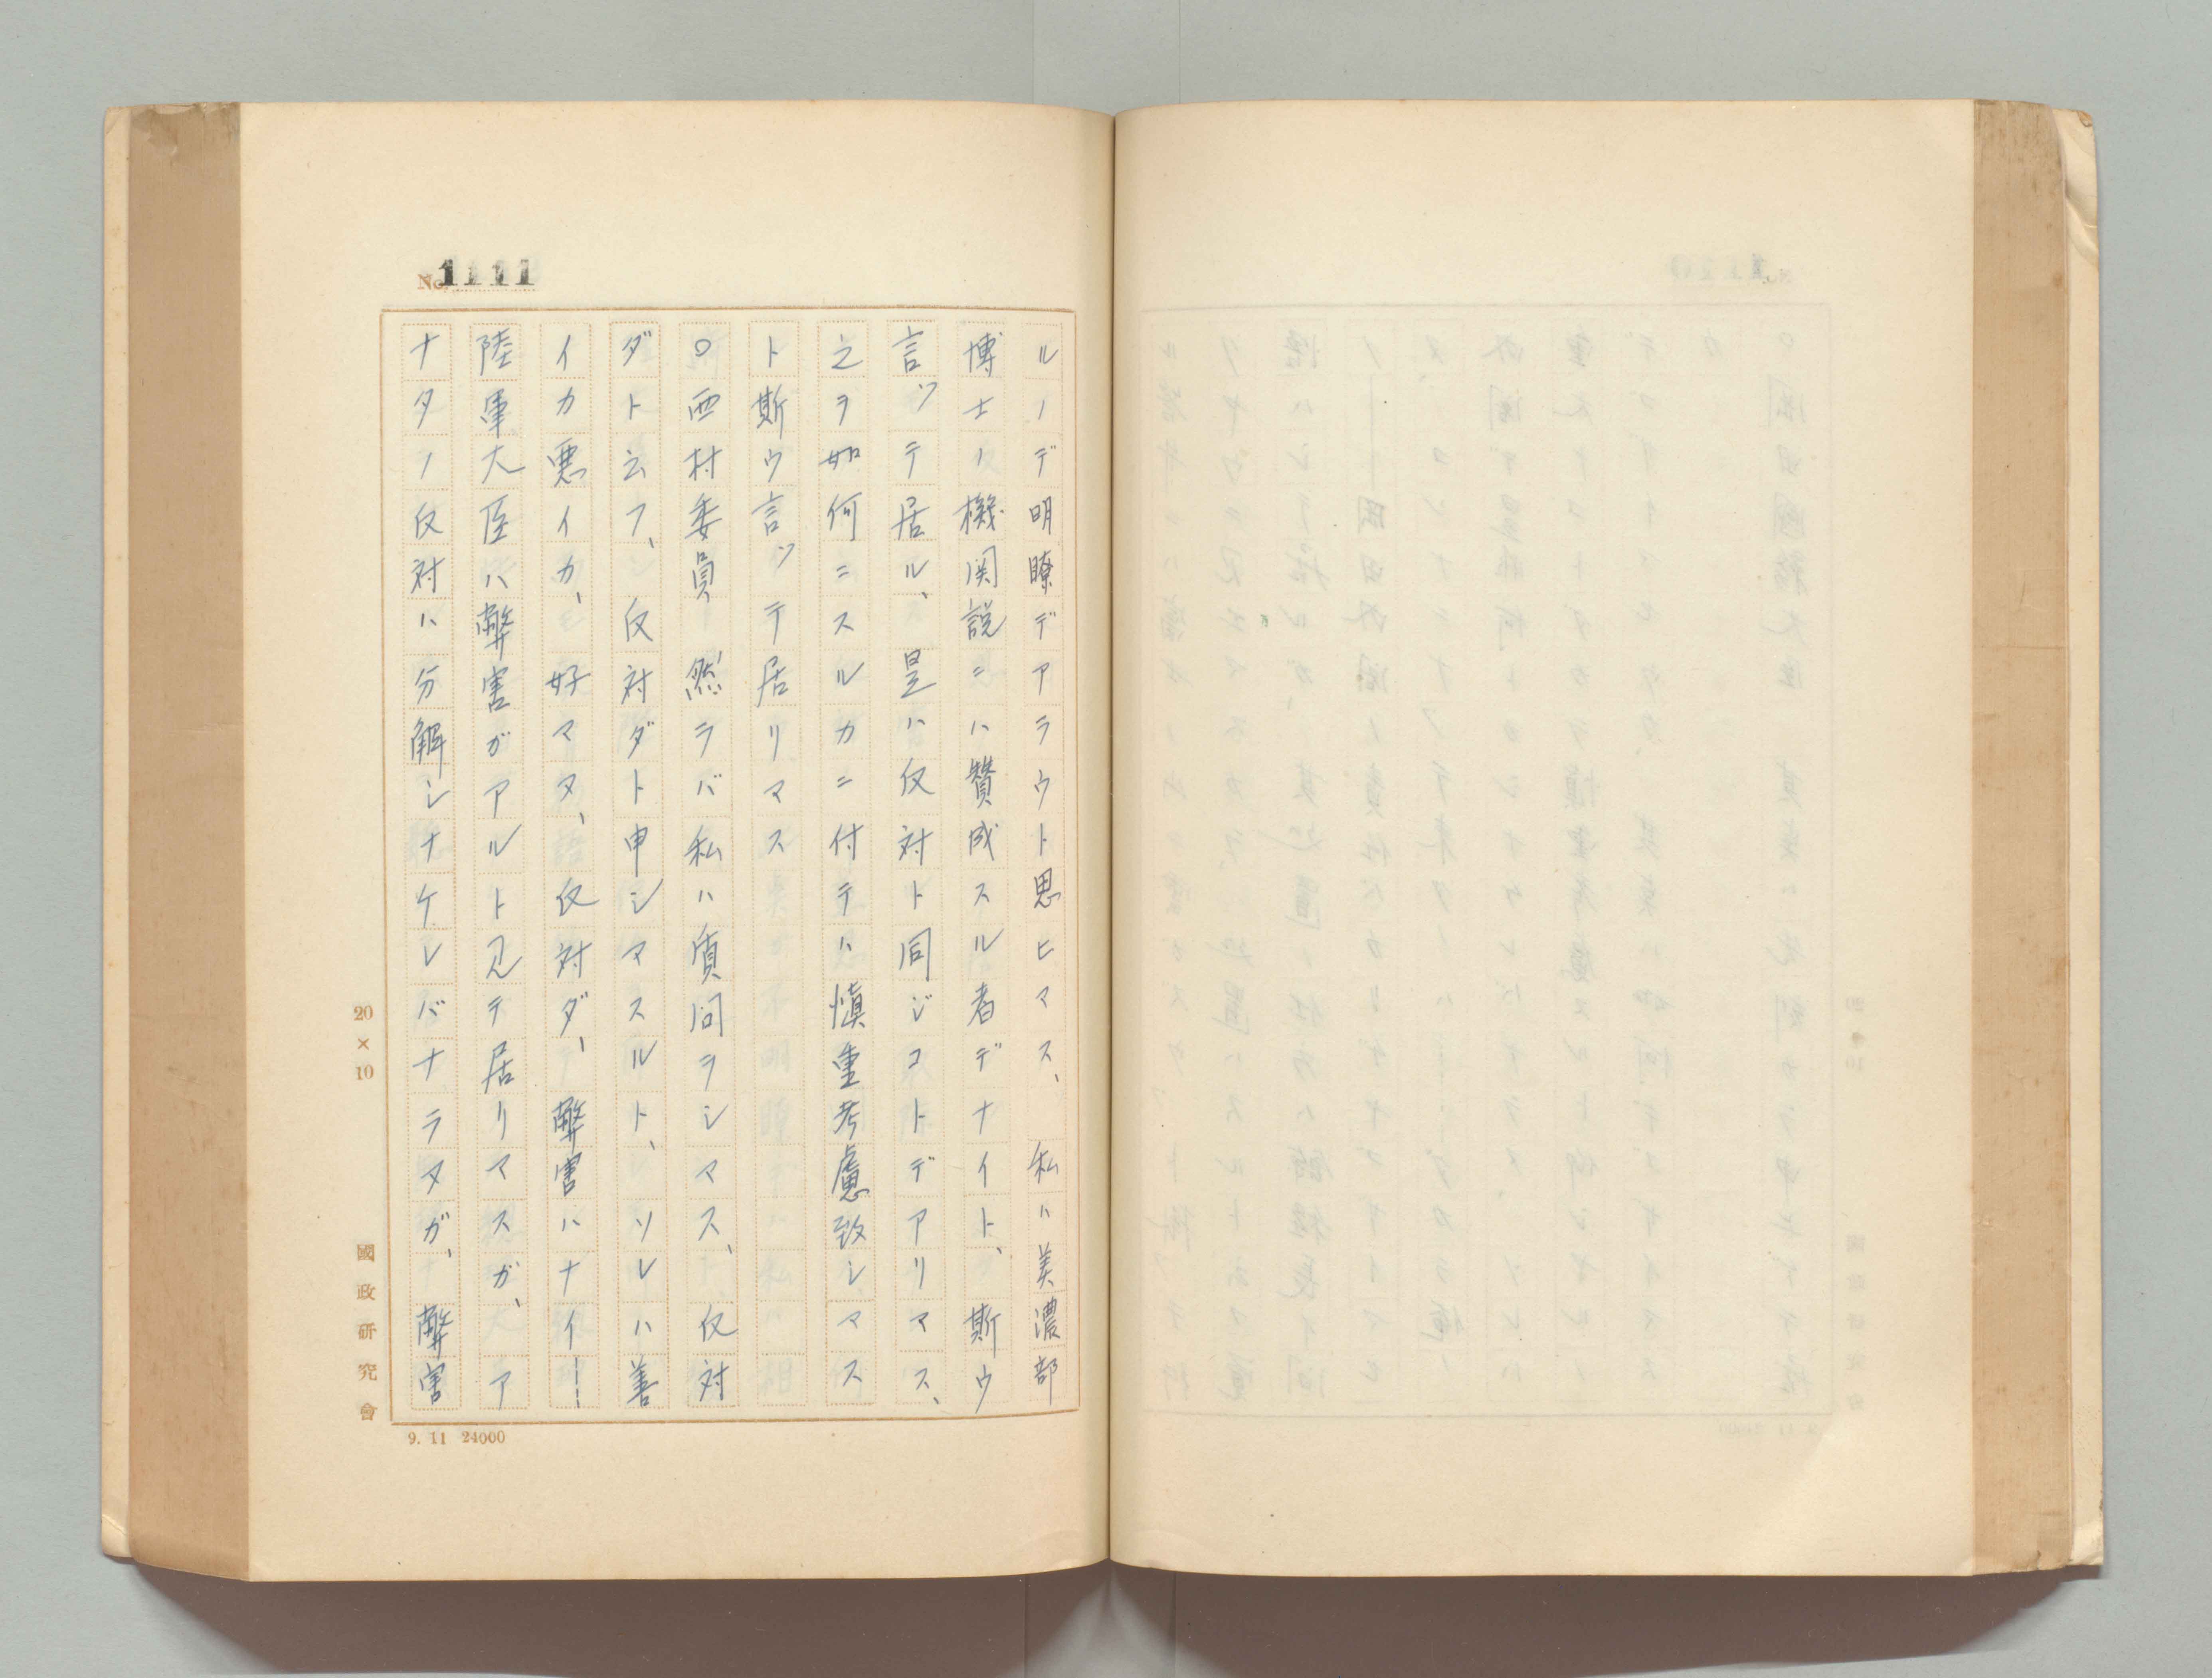 No. 1111
ルノデ明瞭デアラウト思ヒマス、私ハ美濃部
博士ノ機関説ニハ賛成スル者デナイト、斯ウ
言ツテ居ル、是ハ反対ト同ジコトデアリマス、
之ヲ如何ニスルカニ付テハ慎重考慮致シマス
ト斯ウ言ツテ居リマス
〇西村委員 然ラバ私ハ質問ヲシマス、反対
ダト云フ、反対ダト申シマスルト、ソレハ善
イカ悪イカ、好マヌ、反対ダ、弊害ハナイ――
陸軍大臣ハ弊害ガアルト見テ居リマスガ、ア
ナタノ反対ハ分解シナケレバナラヌガ、弊害
20×10
國政研究會
9. 11 24000